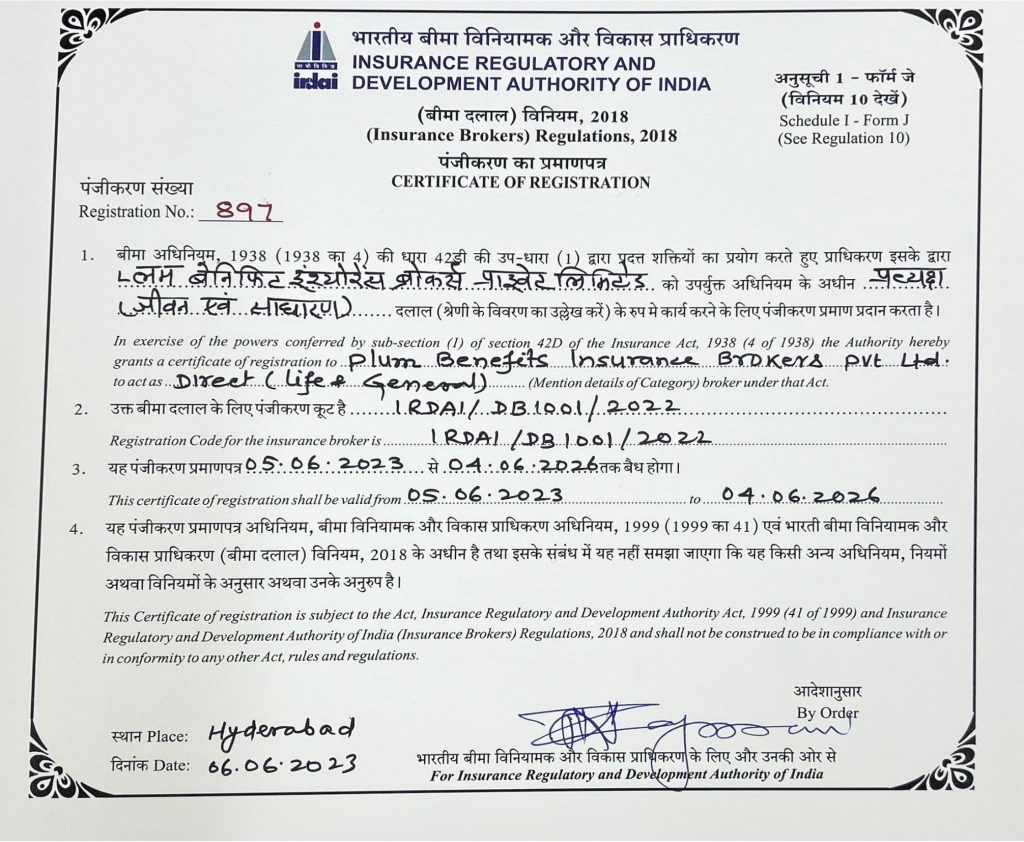 भारतीय बीमा विनियामक और विकास प्राधिकरण
INSURANCE REGULATORY AND
DEVELOPMENT AUTHORITY OF INDIA
irdai
(बीमा दलाल) विनियम, 2018
(Insurance Brokers) Regulations, 2018
अनुसूची 1 - फॉर्म जे
(विनियम 10 देखें)
Schedule I - Form J
(See Regulation 10)
पंजीकरण का प्रमाणपत्र
CERTIFICATE OF REGISTRATION
पंजीकरण संख्या
Registration No.: 897
1. बीमा अधिनियम, 1938 (1938 का 4) की धारा 42डी की उप-धारा (1) द्वारा प्रदत्त शक्तियों का प्रयोग करते हुए प्राधिकरण इसके द्वारा
प्लम बेनिफिट इंश्योरेंस ब्रोकर्स प्राइवेट लिमिटेड को उपर्युक्त अधिनियम के अधीन प्रत्यक्ष
(जीवन एवं साधारण)...... दलाल (श्रेणी के विवरण का उल्लेख करें) के रुप मे कार्य करने के लिए पंजीकरण प्रमाण प्रदान करता है।
In exercise of the powers conferred by sub-section (1) of section 42D of the Insurance Act, 1938 (4 of 1938) the Authority hereby
grants a certificate of registration to Plum Benefits Insurance Brokers Pvt Ltd.
to act as Direct (Life & General) (Mention details of Category) broker under that Act.
2. उक्त बीमा दलाल के लिए पंजीकरण कूट है IRDAI/DB1001/2022
Registration Code for the insurance broker is IRDAI/DB1001/2022
3. यह पंजीकरण प्रमाणपत्र 05.06.2023 से 04.06.2026 तक बैध होगा।
This certificate of registration shall be valid from 05.06.2023 to 04.06.2026
4. यह पंजीकरण प्रमाणपत्र अधिनियम, बीमा विनियामक और विकास प्राधिकरण अधिनियम, 1999 (1999 का 41) एवं भारती बीमा विनियामक और
विकास प्राधिकरण (बीमा दलाल) विनियम, 2018 के अधीन है तथा इसके संबंध में यह नहीं समझा जाएगा कि यह किसी अन्य अधिनियम, नियमों
अथवा विनियमों के अनुसार अथवा उनके अनुरुप है।
This Certificate of registration is subject to the Act, Insurance Regulatory and Development Authority Act, 1999 (41 of 1999) and Insurance
Regulatory and Development Authority of India (Insurance Brokers) Regulations, 2018 and shall not be construed to be in compliance with or
in conformity to any other Act, rules and regulations.
आदेशानुसार
By Order
स्थान Place: Hyderabad
दिनांक Date: 06.06.2023
भारतीय बीमा विनियामक और विकास प्राधिकरण के लिए और उनकी ओर से
For Insurance Regulatory and Development Authority of India